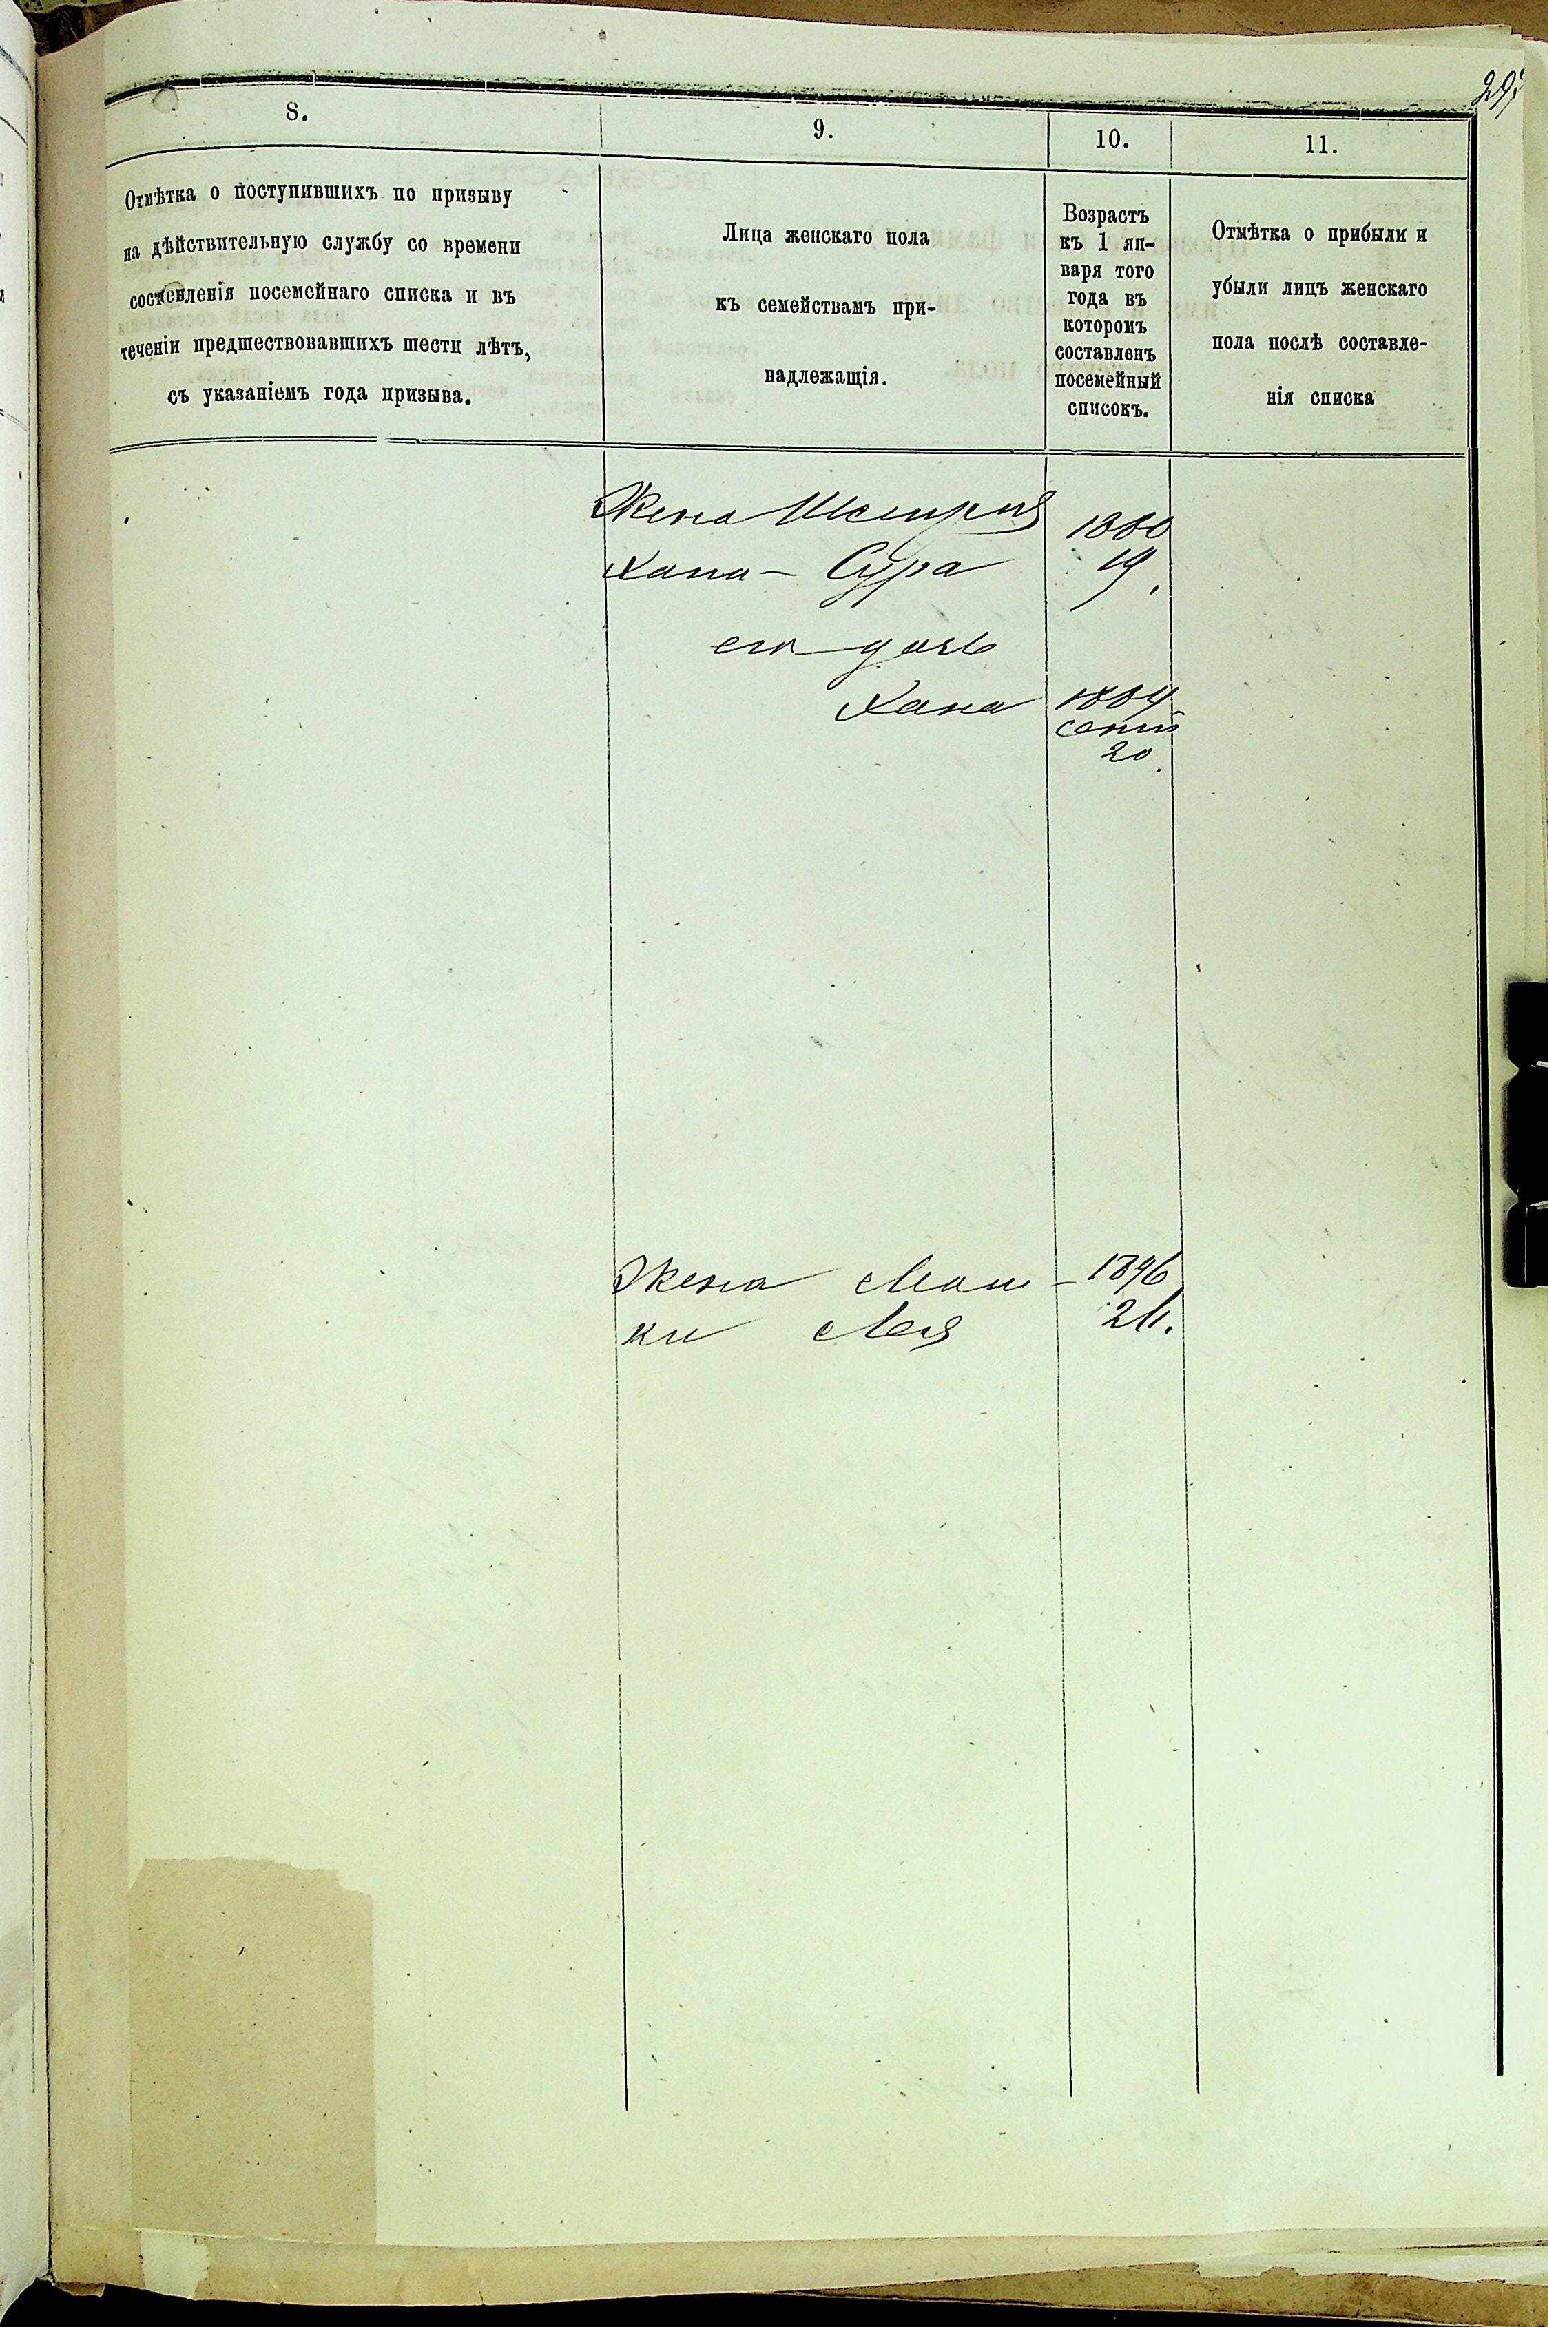 8.
9.
10.
11.
Отмѣтка о поступившихъ по призыву
на дѣйствительную службу со времени
составленія посемейнаго списка и въ
теченіи предшествовавшихъ шести лѣтъ,
съ указаніемъ года призыва.
Лица женскаго пола
къ семействамъ при-
надлежащія.
Возрастъ
къ 1 ян-
варя того
года въ
которомъ
составленъ
посемейный
списокъ.
Отмѣтка о прибыли и
убыли лицъ женскаго
пола послѣ составле-
нія списка
Жена
1880
Хана - Сура
19.
его дочь
Хана
1884
20.
Жена Мош-
1896
ки Лея